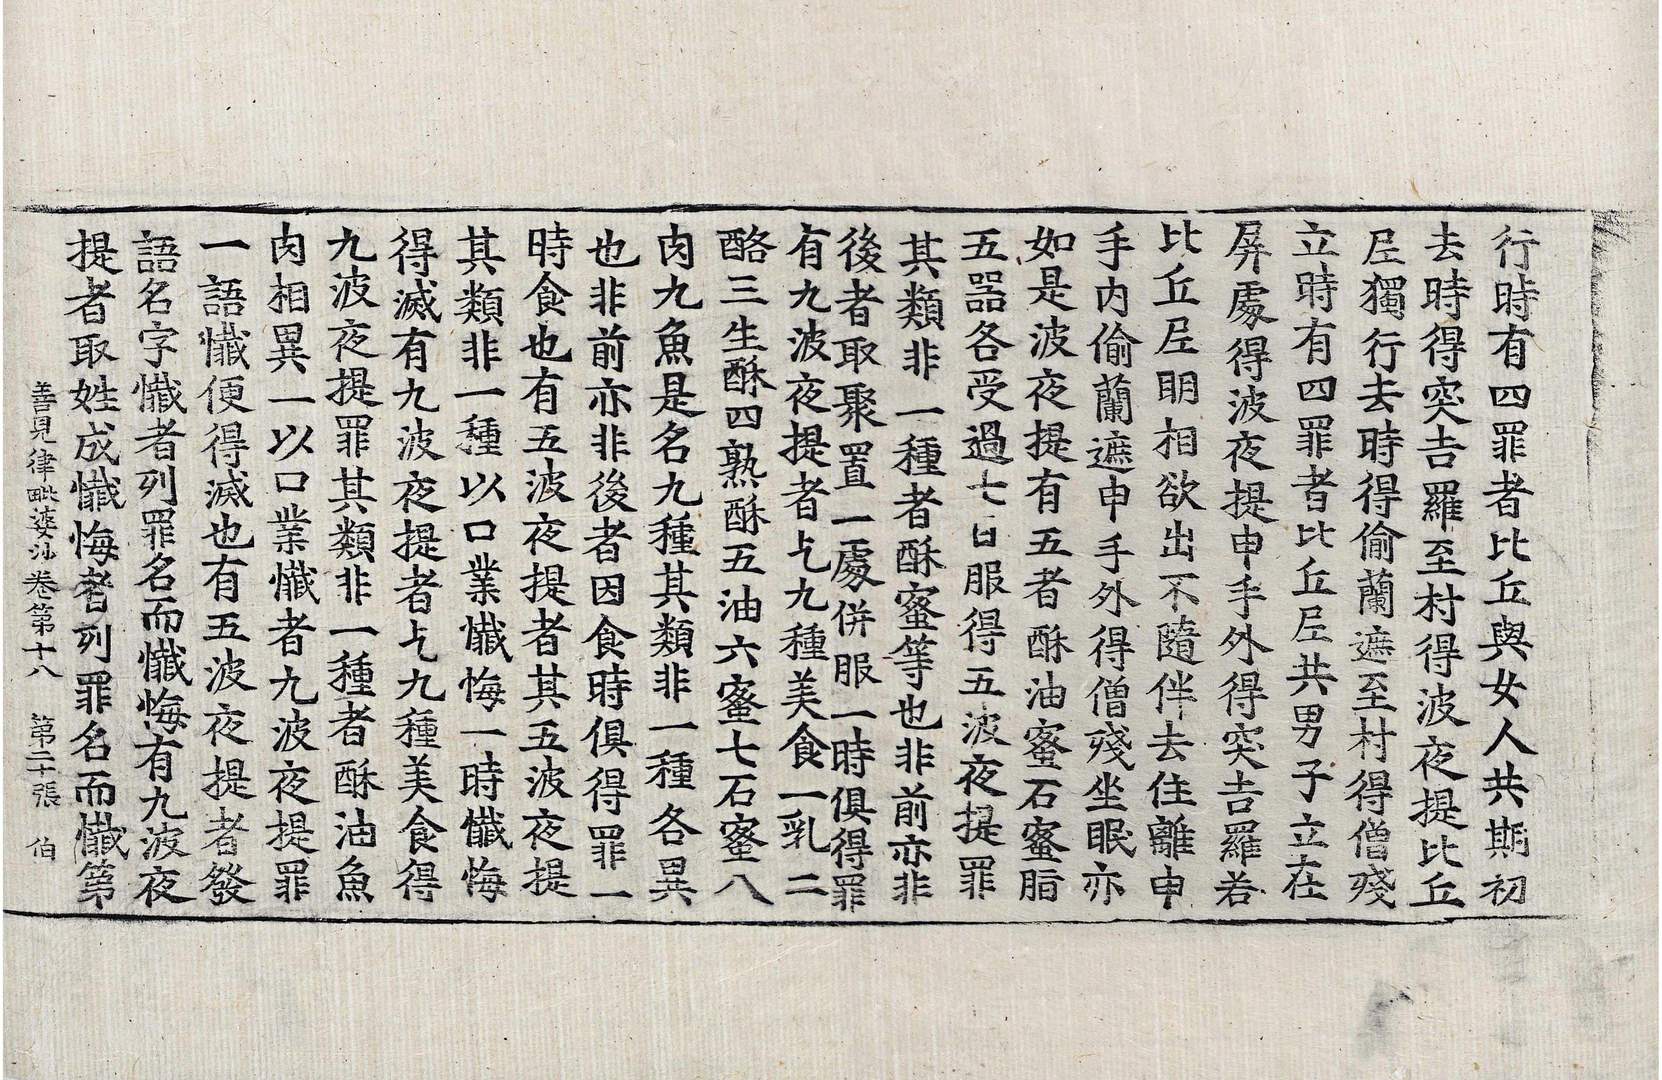 行時有四罪者比丘與女人共期初
去時得突吉羅至村得波夜提比丘
尼獨行去時得偷蘭遮至村得僧殘
立時有四罪者比丘尼共男子立在
屏處得波夜提申手外得突吉羅若
比丘尼明相欲出不隨伴去住離申
手內偷蘭遮申手外得僧殘坐眠亦
如是波夜提有五者酥油蜜石蜜脂
五器各受過七日服得五波夜提罪
其類非一種者酥蜜等也非前亦非
後者取聚置一處併服一時俱得罪
有九波夜提者乞九種美食一乳二
酪三生酥四熟酥五油六蜜七石蜜八
肉九魚是名九種其類非一種各異
也非前亦非後者因食時俱得罪一
時食也有五波夜提者其五波夜提
其類非一種以口業懺悔一時懺悔
得滅有九波夜提者乞九種美食得
九波夜提罪其類非一種者酥油魚
肉相異一以口業懺者九波夜提罪
一語懺便得滅也有五波夜提者發
語名字懺者列罪名而懺悔有九波夜
提者取姓成懺悔者列罪名而懺第
善見律毗婆沙卷第十八 第二十張 伯